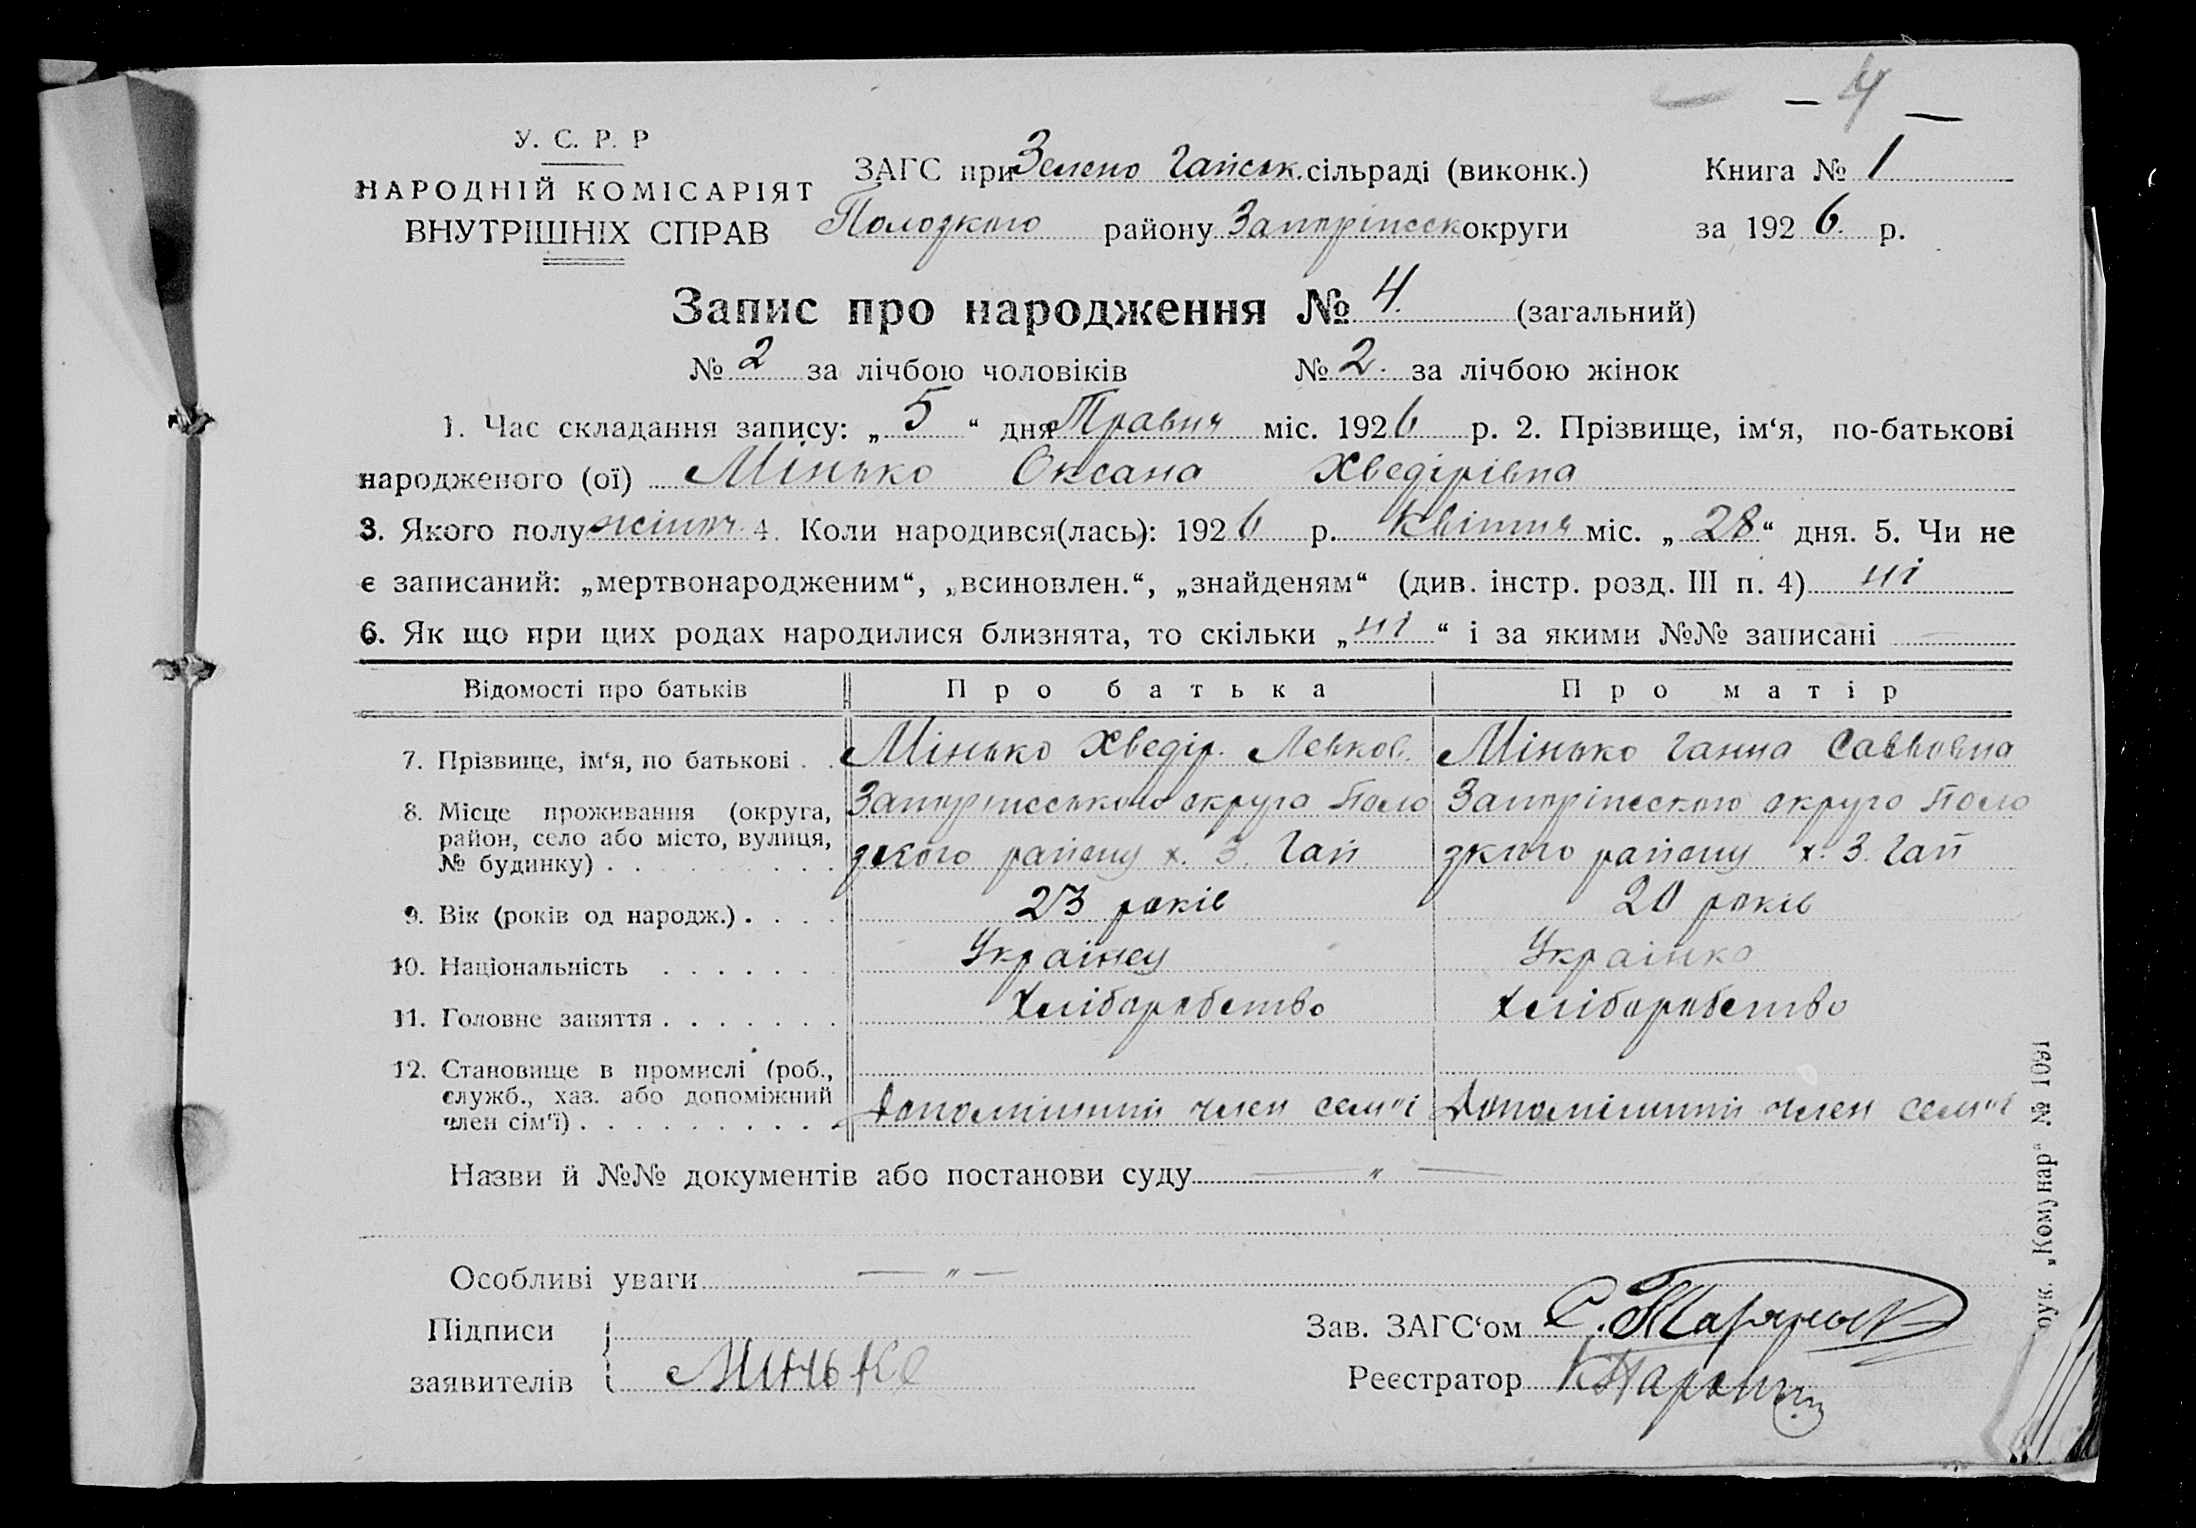 — 4 —
У. С. Р. Р
НАРОДНІЙ КОМІСАРІЯТ
ВНУТРІШНІХ СПРАВ
ЗАГС при Зелено Гайськ. сільраді (виконк.) Книга № 1
Пологкого району Запоріпсск округи за 1926. р.
Запис про народження № 4. (загальний)
№ 2 за лічбою чоловіків № 2. за лічбою жінок
1. Час складання запису: „ 5 “ дня Травня міс. 1926 р. 2. Прізвище, ім‘я, по-батькові
народженого (ої) Мінько Оксана Хведірівна
3. Якого полу жіноч. 4. Коли народився(лась): 1926 р. Квітня міс. „ 28 “ дня. 5. Чи не
є записаний: „мертвонародженим“, „всиновлен.“, „знайденям“ (див. інстр. розд. III п. 4) ні
6. Як що при цих родах народилися близнята, то скільки „ ні “ і за якими №№ записані —
Відомості про батьків Про батька Про матір
7. Прізвище, ім‘я, по батькові . . Мінько Хведір. Левков. Мінько Ганна Савьовна
8. Місце проживання (округа, район, село або місто, вулиця, № будинку) . . . . . . . . .
Запоріпсського округа Поло
зского району х. З. Гай
Запоріпсского округо Поло
зкого району х. З. Гай
9. Вік (років од народж.) . . . . 23 років 20 років
10. Національність . . . . . . . Українец Українко
11. Головне заняття . . . . . . . Хліборобство Хліборобство
12. Становище в промислі (роб., служб., хаз. або допоміжний член сім‘ї) . . . . . . . . . .
Допоміжний член сем"ї Допоміжний член сем"ї
Назви й №№ документів або постанови суду — " —
Особливі уваги — " —
Підписи
заявителів Минько
Зав. ЗАГС‘ом
Реєстратор
рук. „Комунар“ № 1091